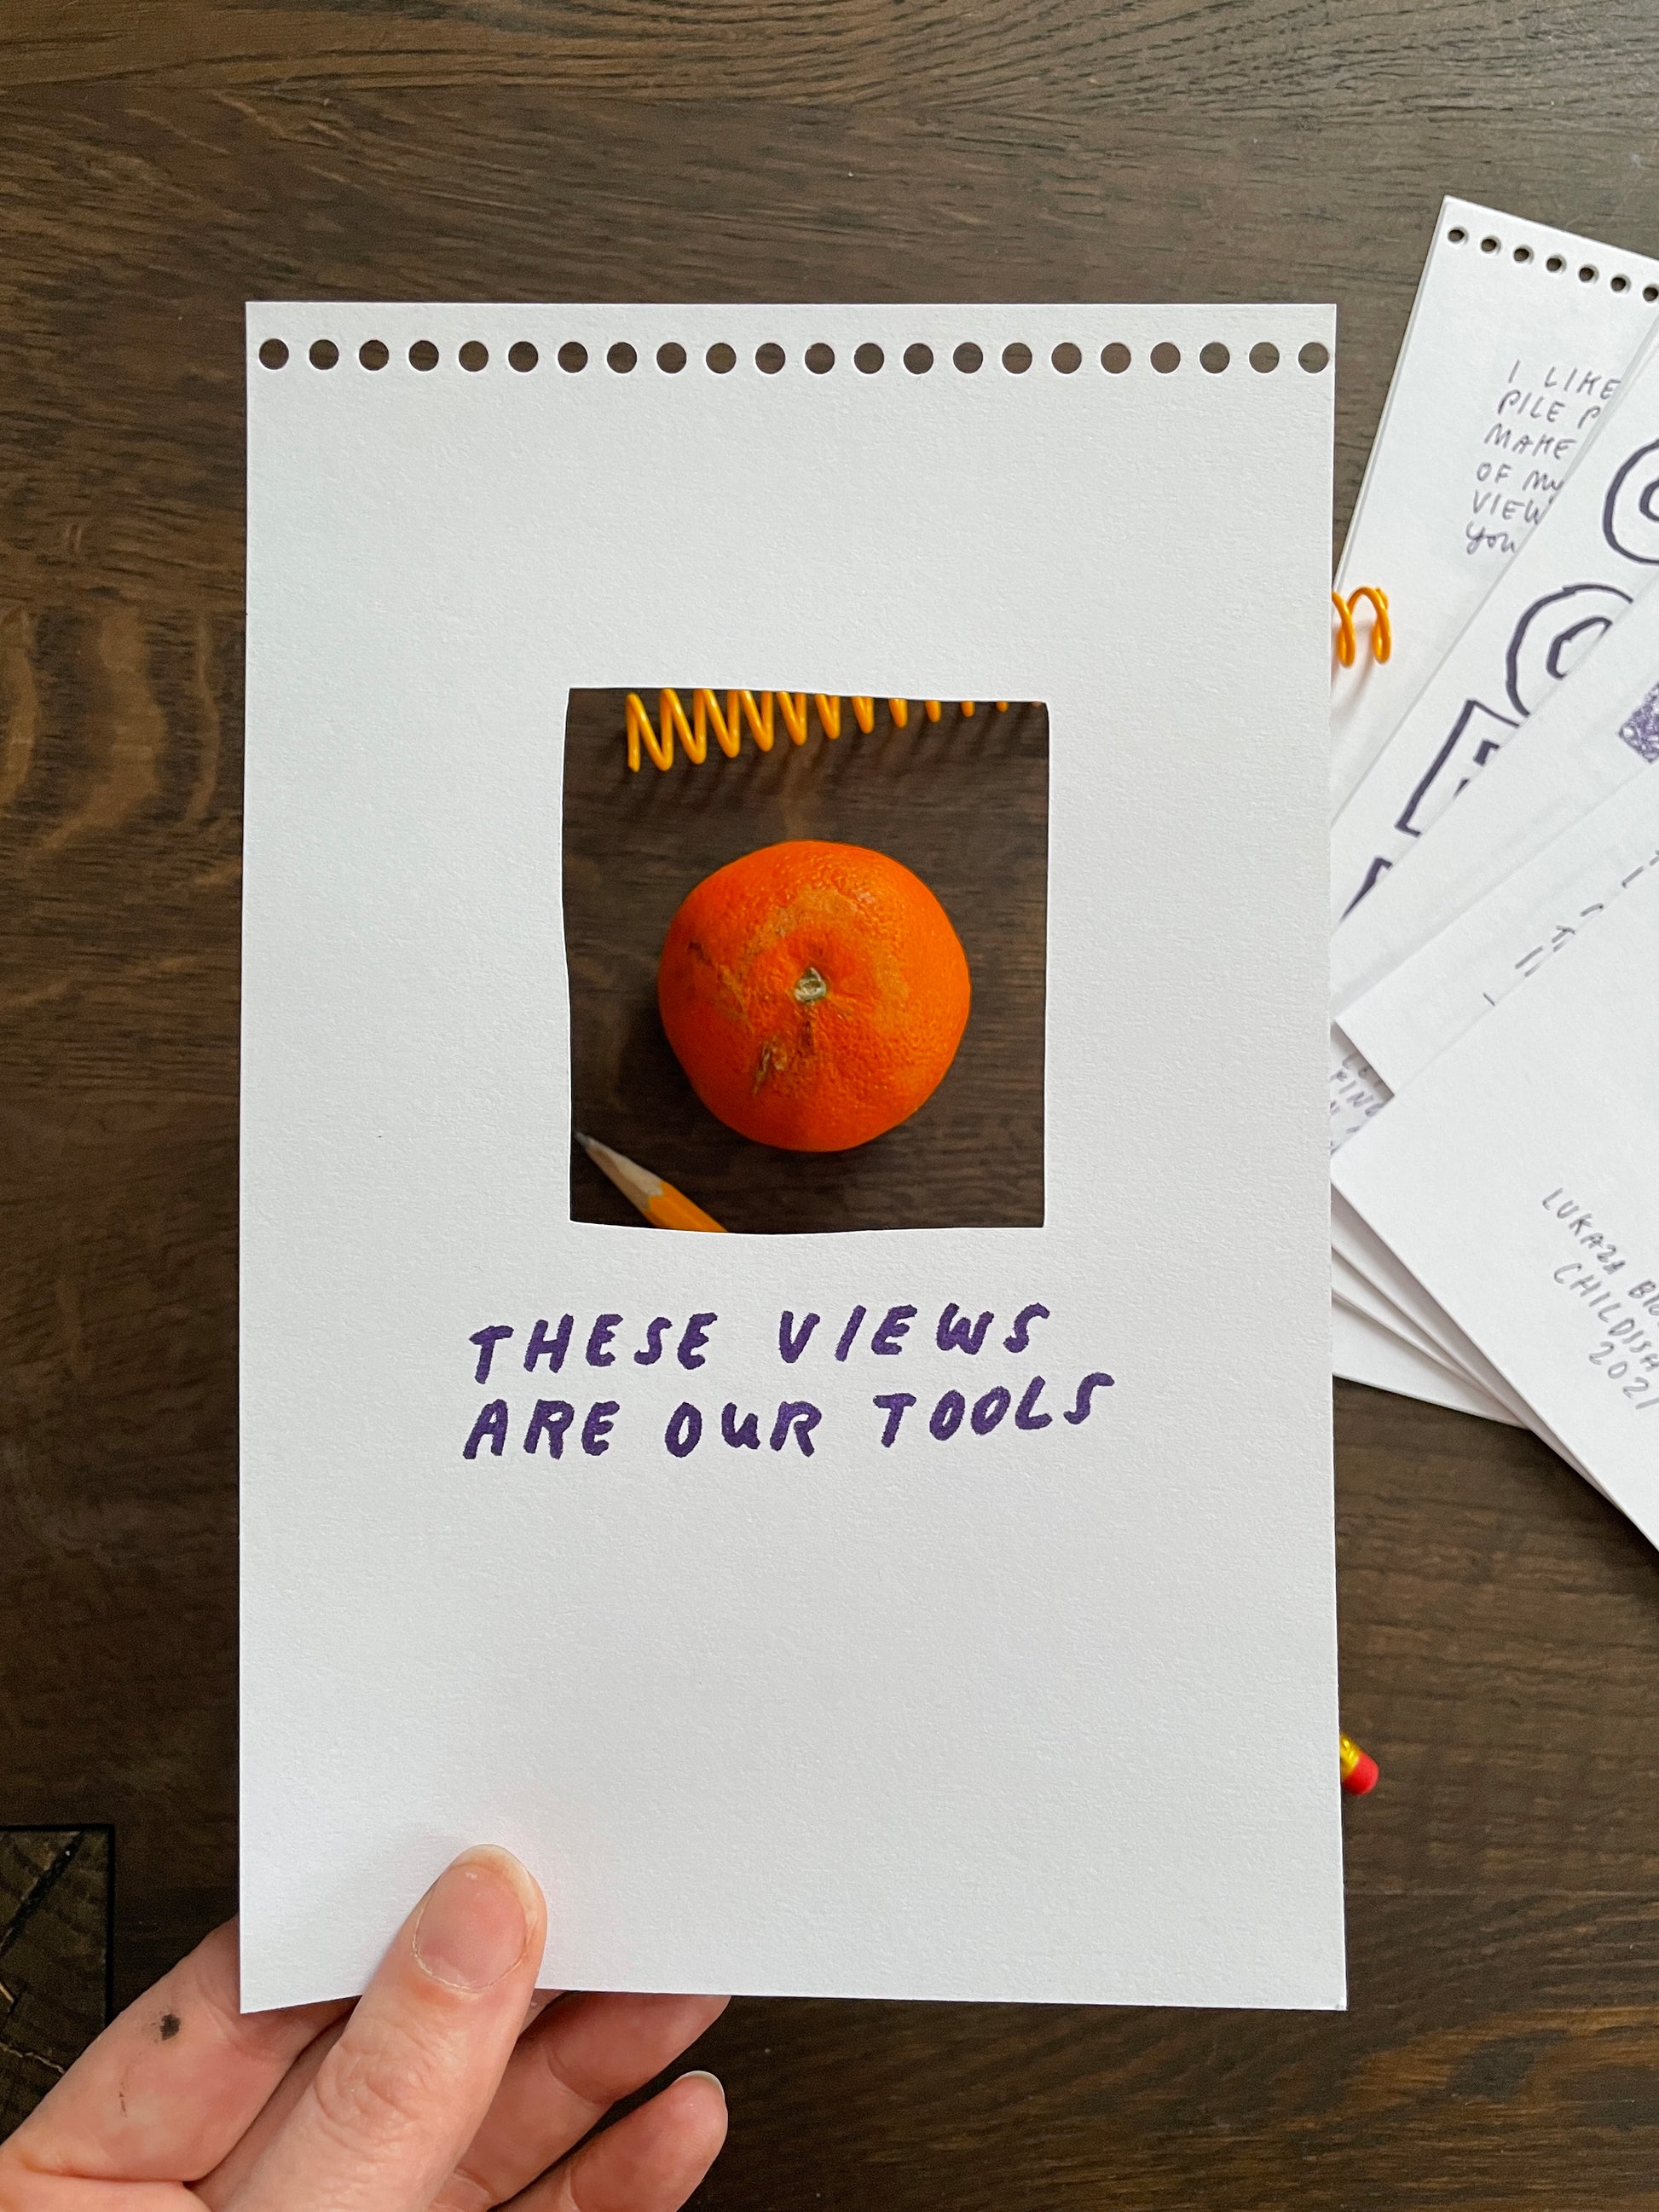 THESE VIEWS
ARE OUR TOOLS
I LIKE
PILE
MAKE
OF MY
VIEW
you
LUKAZA
CHILDISH
2021